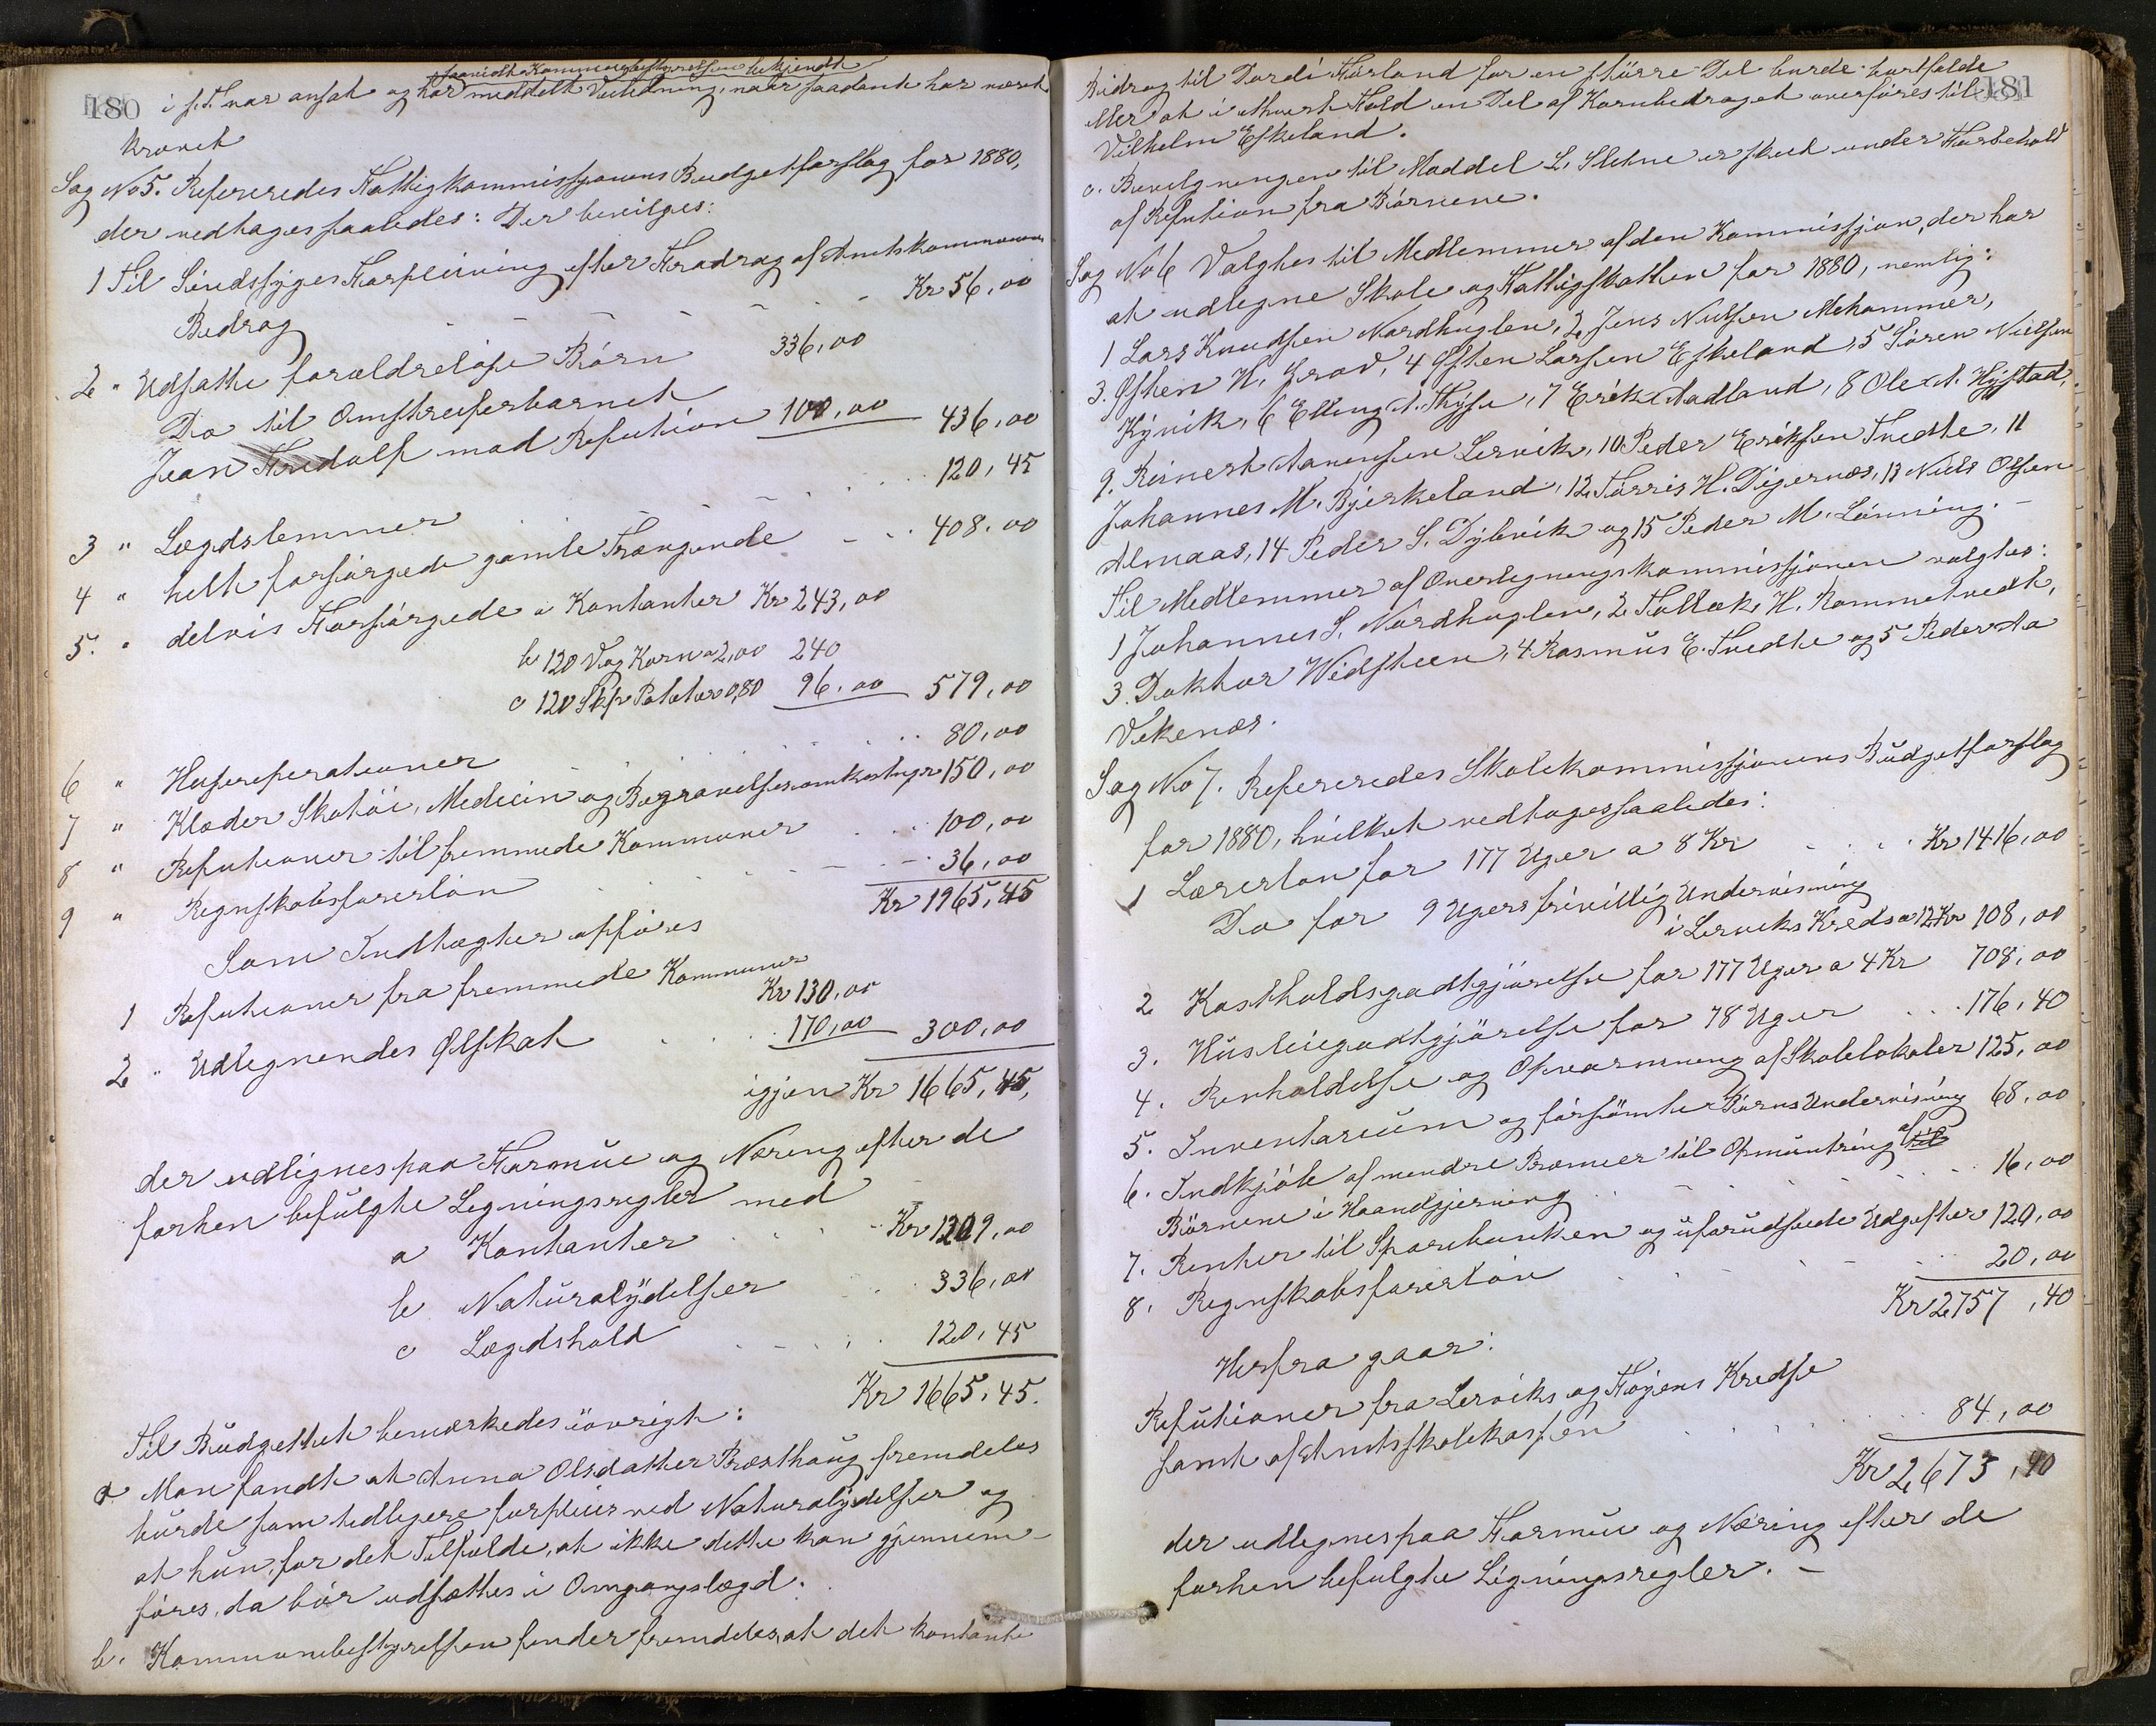 180
saavidt Kommunebestyrelsen bekjendt
i s. T. var ansat og har meddelt Veiledning, naar saadant har været
krævet
Sag No 5. Refereredes Fattigkommissjonens Budgetforslag for 1880,
der vedtages saaledes: Der bevilges:
1 Til Sindssyges Forpleining efter Fradrag af Amtskommunens
Bidrag Kr 56,00
2 " Udsatte forældreløse Børn 336,00
Do til Omstreiferbarnet
Jean Fredolf mod Refution 100,00 436,00
3 " Lægdslemmer 120,45
4 " helt forsørgede gamle Trængende 408,00
5. " delvis Forsørgede a Kontanter Kr 243,00
b 120 Vog Korn a 2,00 240
c 120 Skp Poteter 0,80 96,00 579,00
6 " Husreperationer 80,00
7 " Klæder Skotøi, Medicin og Begravelsesomkostninger 150,00
8 " Refutioner til fremmede Kommuner 100,00
9 " Regnskabsførerløn 36,00
Kr 1965,45
Som Indtægter opføres
1 Refutioner fra fremmede Kommuner
Kr 130,00
2 " Udlignendes Ølskat 170,00 300,00
igjen Kr 1665,45,
der udlignes paa Formue og Næring efter de
forhen befulgte Ligningsregler med
a Kontanter Kr 1209,00
b Naturalydelser 336,00
c Lægdshold 120,45
Kr 1665,45.
Til Budgettet bemærkedes iøvrigt:
a Man fandt at Anna Olsdatter Præsthaug fremdeles
burde som tidligere forpleies ved Naturalydelser og
at hun, for det Tilfælde, at ikke dette kan gjennem-
føres, da bør udsættes i Omgangslægd.
b. Kommunebestyrelsen finder fremdeles, at det kontante
181
Bidrag til Dordi Førland for en større Del burde bortfalde
eller at i ethvert Fald en Del af Kornbidraget overføres til
Vilhelm Eskeland.
c. Bevilgningen til Maddel L. Sletne er skeet under Forbehold
af Refution fra Børnene.
Sag No 6 Valgtes til Medlemmer af den Kommissjon, der har
at udligne Skole og Fattigskatten for 1880, nemlig:
1 Lars Knudsen Nordhuglen, 2 Jens Nielsen Mehammer,
3. Østen H. Grov, 4 Østen Larsen Eskeland, 5 Søren Nielsen
Kyvik, 6 Elling A. Thyse, 7 Erik Aadland, 8 Ole A. Hystad,
9. Reinert Aanensen Lervik, 10 Peder Eriksen Tvedte, 11
Johannes M. Bjerkeland, 12 Tørris H. Digernæs, 13 Niels Olsen
Almaas, 14 Peder S. Dybvik og 15 Peder M. Lønning. –
Til Medlemmer af Overligningskommissjonen valgtes:
1 Johannes S. Nordhuglen, 2 Tollak H. Rommetvedt,
3. Doktor Widsteen, 4 Rasmus E. Tvedte og 5 Peder Aa
Vikenæs.
Sag No 7. Refereredes Skolekommissjonens Budgetforslag
for 1880, hvilket vedtoges saaledes:
1 Lærerløn for 177 Uger a 8 Kr Kr 1416,00
Do for 9 Ugers frivillig Undervisning
i Lerviks Kreds a 12 Kr 108,00
2 Kostholdsgodtgjørelse for 177 Uger a 4 Kr 708,00
3. Husleiegodtgjørelse for 78 Uger 176,40
4. Renholdelse og Opvarmning af Skolelokaler 125,00
5. Inventarium og forsømte Børns Undervisning 68,00
6. Indkjøb af mindre Præmier til Opmuntring af til
Børnene i Haandgjerning 16,00
7. Renter til Sparebanken og uforudseede Udgifter 120,00
8. Regnskabsførerløn 20,00
Kr 2757,40
Herfra gaar:
Refutioner fra Lerviks og Føyens Kredse
samt af Amtsskolekassen 84,00
Kr 2,673,40
der udlignes paa Formue og Næring efter de
forhen befulgte Ligningsregler. –